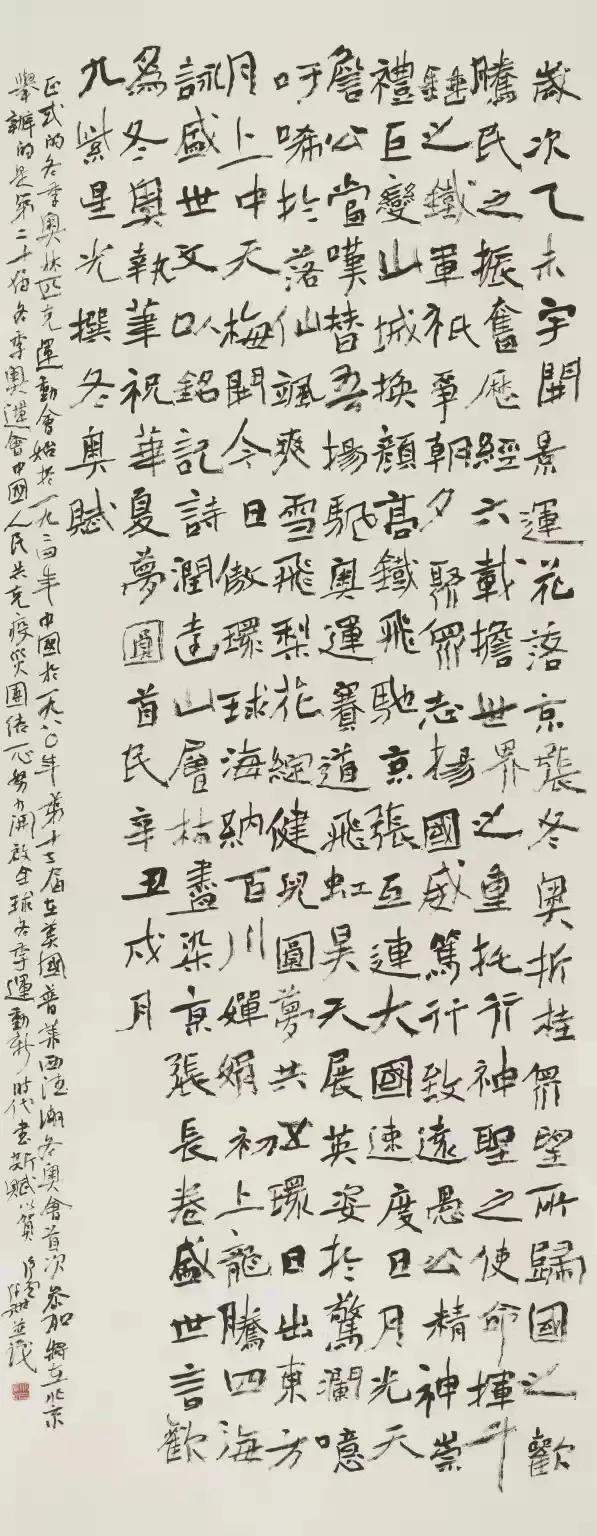 歲次乙未宇開景運花落京張冬奧折桂眾望所歸國之歡
騰民之振奮歷經六載擔世界之重托行神聖之使命揮斗
錘之鐵軍祇爭朝夕聚眾志揚國威篤行致遠愚公精神崇
禮巨變山城換顏高鐵飛馳京張互連大國速度日月光天
詹公當嘆替吾揚馳奧運賽道飛虹昊天展英姿於驚瀾噫
吁唏於落仙颯爽雪飛梨花綻健兒圓夢共五環日出東方
月上中天梅開今日傲環球海納百川嬋娟初上龍騰四海
詠盛世文以銘記詩潤達山層林盡染京張長卷盛世言歡
為冬奧執筆祝華夏夢圓首民辛丑戌月
九紫星光撰冬奧賦
正式的冬季奧林匹克運動會始於一九二四年中國於一九八〇年第十三屆在美國普萊西德湖冬奧會首次參加將在北京
舉辦的是第二十四屆冬季奧運會中國人民共克疫災團結一心努力開啟全球冬季運動新時代書斯賦以賀 並識